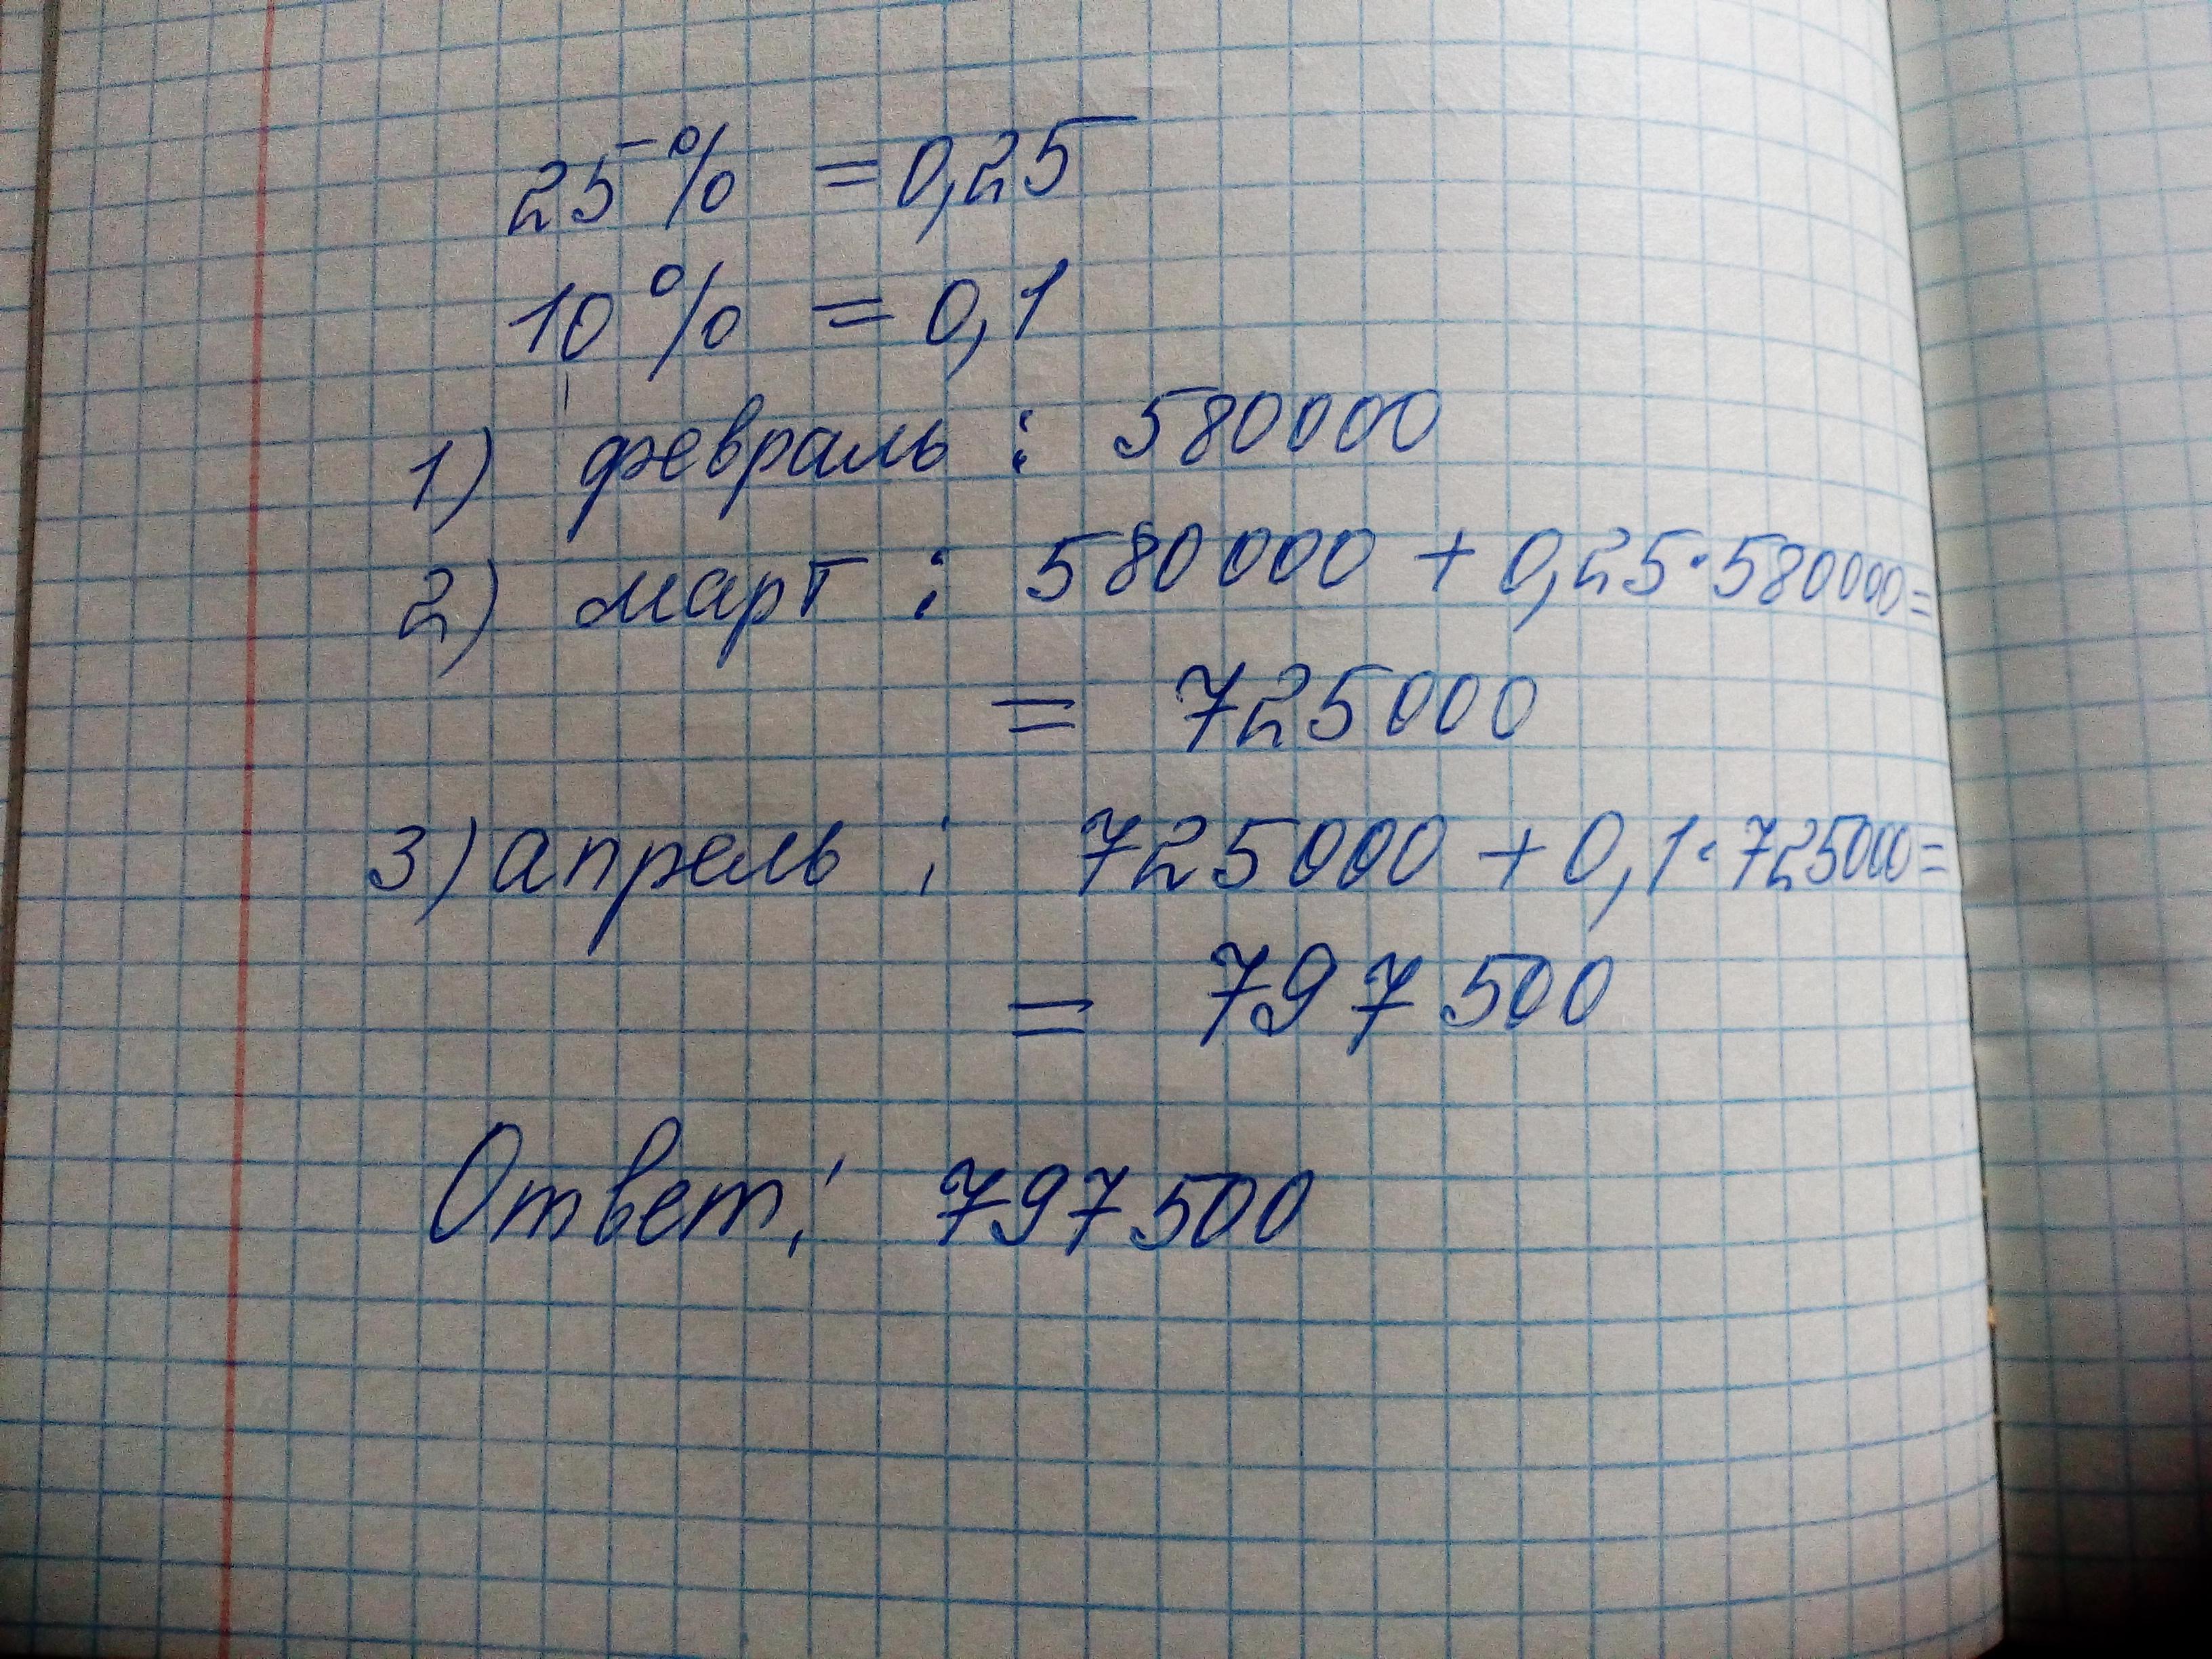 25% = 0,25
10% = 0,1
1) февраль : 580000
2) март : 580000 + 0,25·580000=
= 725000
3) апрель : 725000 + 0,1·725000=
= 797500
Ответ: 797500